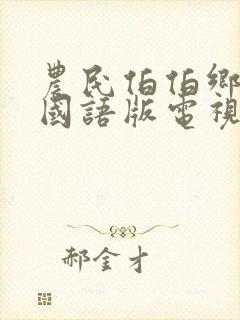 農民伯伯鄉
國語版電視
郝金才